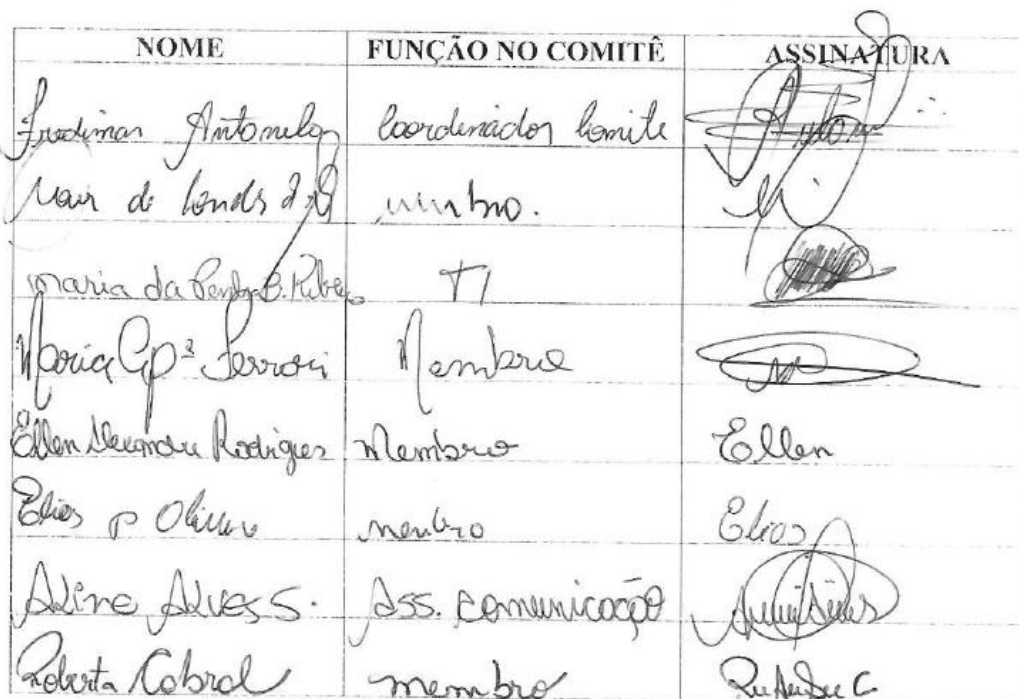 NOME FUNÇÃO NO COMITÊ ASSINATURA
Antonelo Coordenador Comite
de membro.
maria da Penha B. Ribeiro TI
Maria Apª Ferrari Membro
Ellen Alexandre Rodrigues Membro Ellen
Elias P Oliveira membro Elias
Aline Alves S. Ass. Comunicação
Roberta Cabral membro